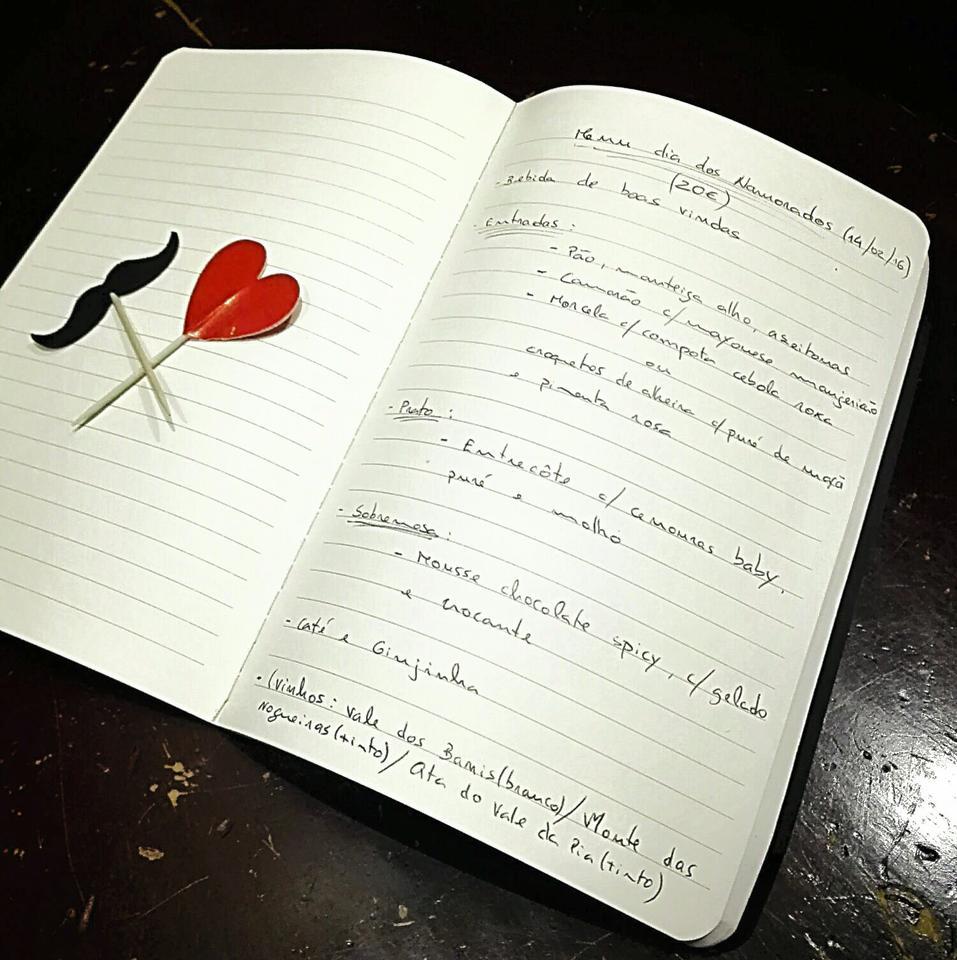 Menu dia dos Namorados (14/02/16)
(20€)
- Bebida de boas vindas
- Entradas :
- Pão, manteiga alho, aseitonas
- Camarão c/ mayonese manjericão
- Morcela c/ compota cebola roxa
ou
croquetes de alheira c/ puré de maçã
e pimenta rosa
- Prato :
- Entrecôte c/ cenouras baby,
puré e molho
- Sobremesa :
- Mousse chocolate spicy, c/ gelado
e crocante
- Café e Ginjinha
- (vinhos : Vale dos Barris (branco) / Monte das
Nogueiras (tinto) / Ata do Vale da Pia (tinto)